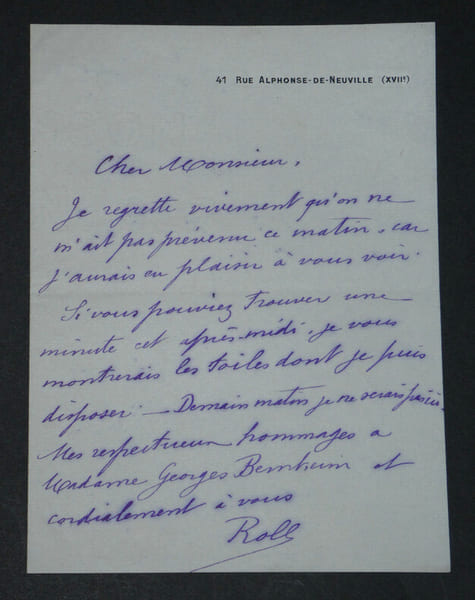 41 RUE ALPHONSE-DE-NEUVILLE (XVIIe)
Cher Monsieur,
Je regrette vivement qu'on ne
m'ait pas prévenu ce matin, car
j'aurais eu plaisir à vous voir.
Si vous pouviez trouver une
minute cet après-midi, je vous
montrerais les toiles dont je puis
disposer. — Demain matin je ne serais pas ici.
Mes respectueux hommages a
Madame Georges Bernheim et
cordialement à vous
Roll